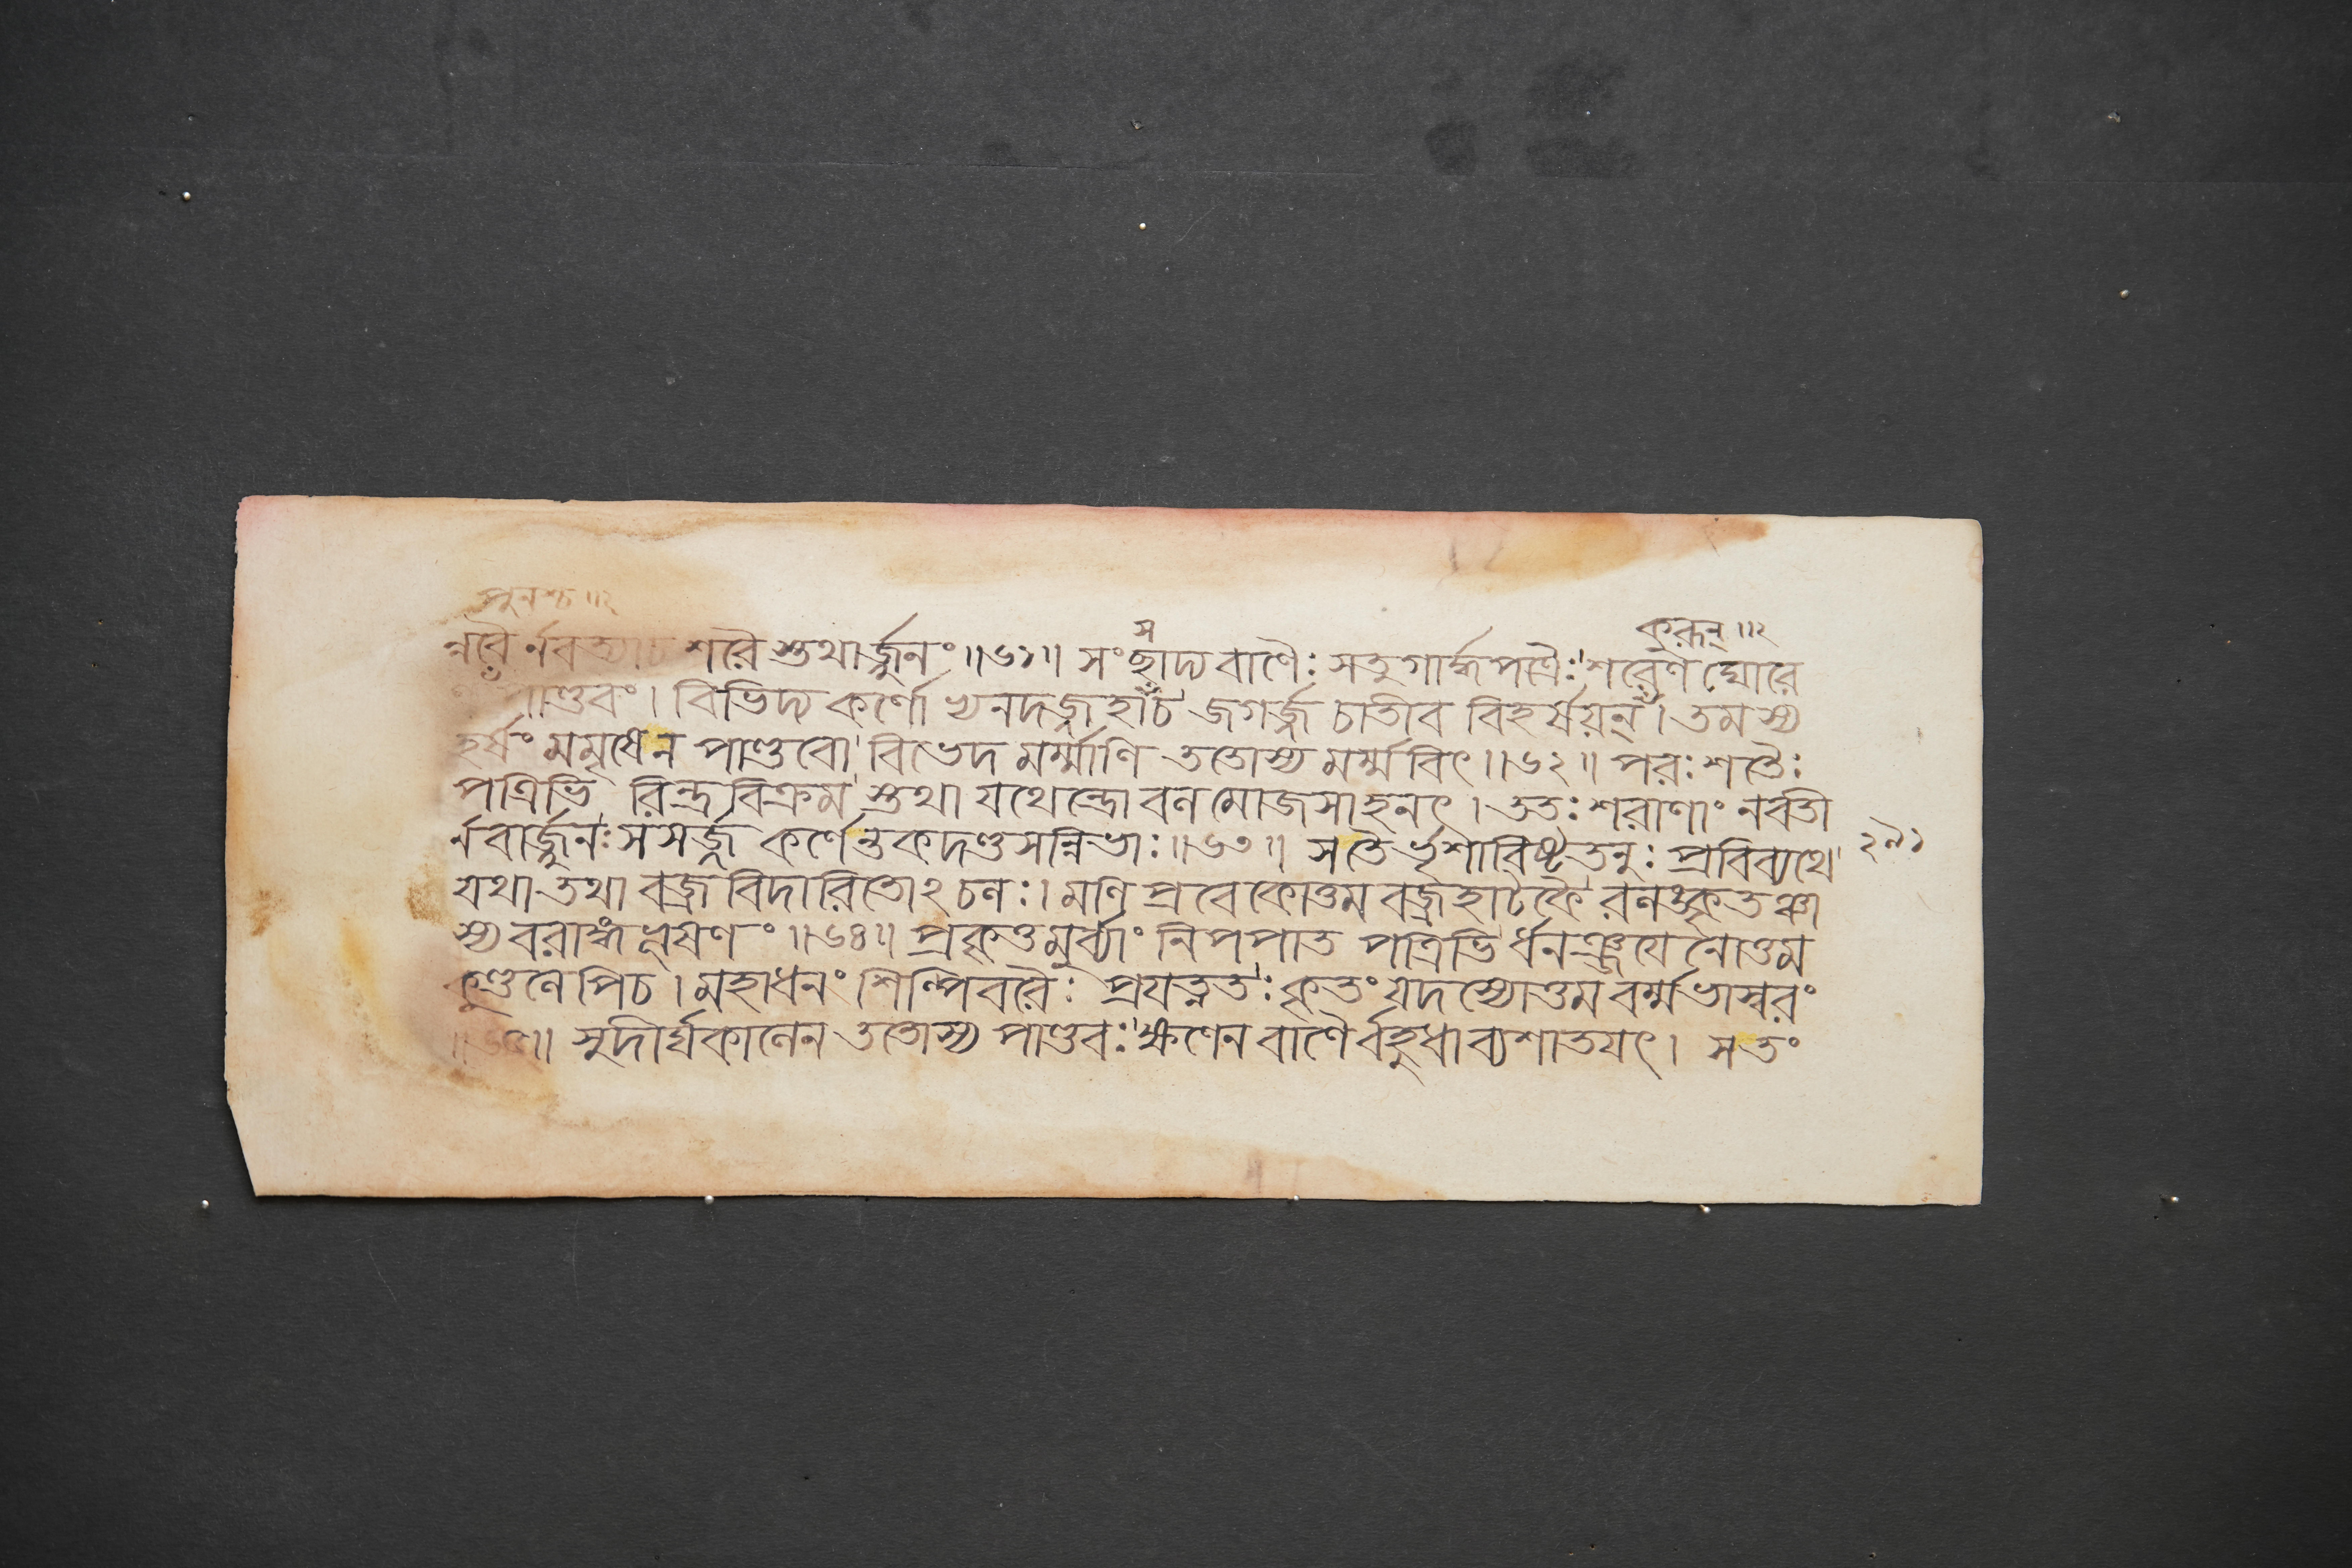 পুনশ্চ ॥২
স
কুরূন্ ॥২
ন্নবৈর্নবত্যাচ শরৈস্তথার্জ্জুনং ॥৬১॥ সংছাদ্য বাণৈঃ সতুগার্দ্ধপত্রৈঃ শরেণ ঘোরে
পাণ্ডবং । বিভিদ্য কর্ণো খনদজ্জহাচ জগর্জ্জ চাতীব বিহর্ষয়ন্ । তমস্য
হর্ষং মমৃষেন পাণ্ডবো বিভেদ মর্ম্মাণি ততোস্য মর্ম্মবিৎ ॥৬২॥ পরঃ শতৈঃ
পত্রিভি রিন্দ্রবিক্রম স্তথা যথেন্দ্রো বলমোজসাহনৎ । ততঃ শরাণাং নবতী
র্নবার্জ্জুনঃ সসর্জ্জ কর্ণেন্তকদণ্ডসন্নিভাঃ ॥৬৩॥ সতৈর্ভৃশাবিষ্টতনুঃ প্রবিব্যথে
২৯১
যথা তথা বজ্রবিদারিতোঽচলঃ । মণিপ্রবেকোত্তমবজ্রহাটকৈ রলঙ্কৃতঞ্চা
স্য বরাঙ্গভূষণং ॥৬৪॥ প্রকৃত্তমুর্ব্ব্যাং নিপপাত পত্রিভি র্ধনঞ্জয়েনোত্তম
কুণ্ডলেপিচ । মহাধনং শিল্পিবরৈঃ প্রযত্নতঃ কৃতং যদস্যোত্তমবর্ম্মভাস্বরং
॥৬৫॥ সুদীর্ঘকালেন ততোস্য পাণ্ডবঃ ক্ষণেন বাণৈর্বহুধা ব্যশাতয়ৎ । সতং